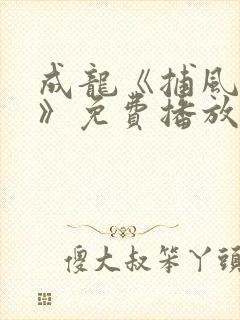 成龍《捕風
》免費播放
傻大叔笨丫頭